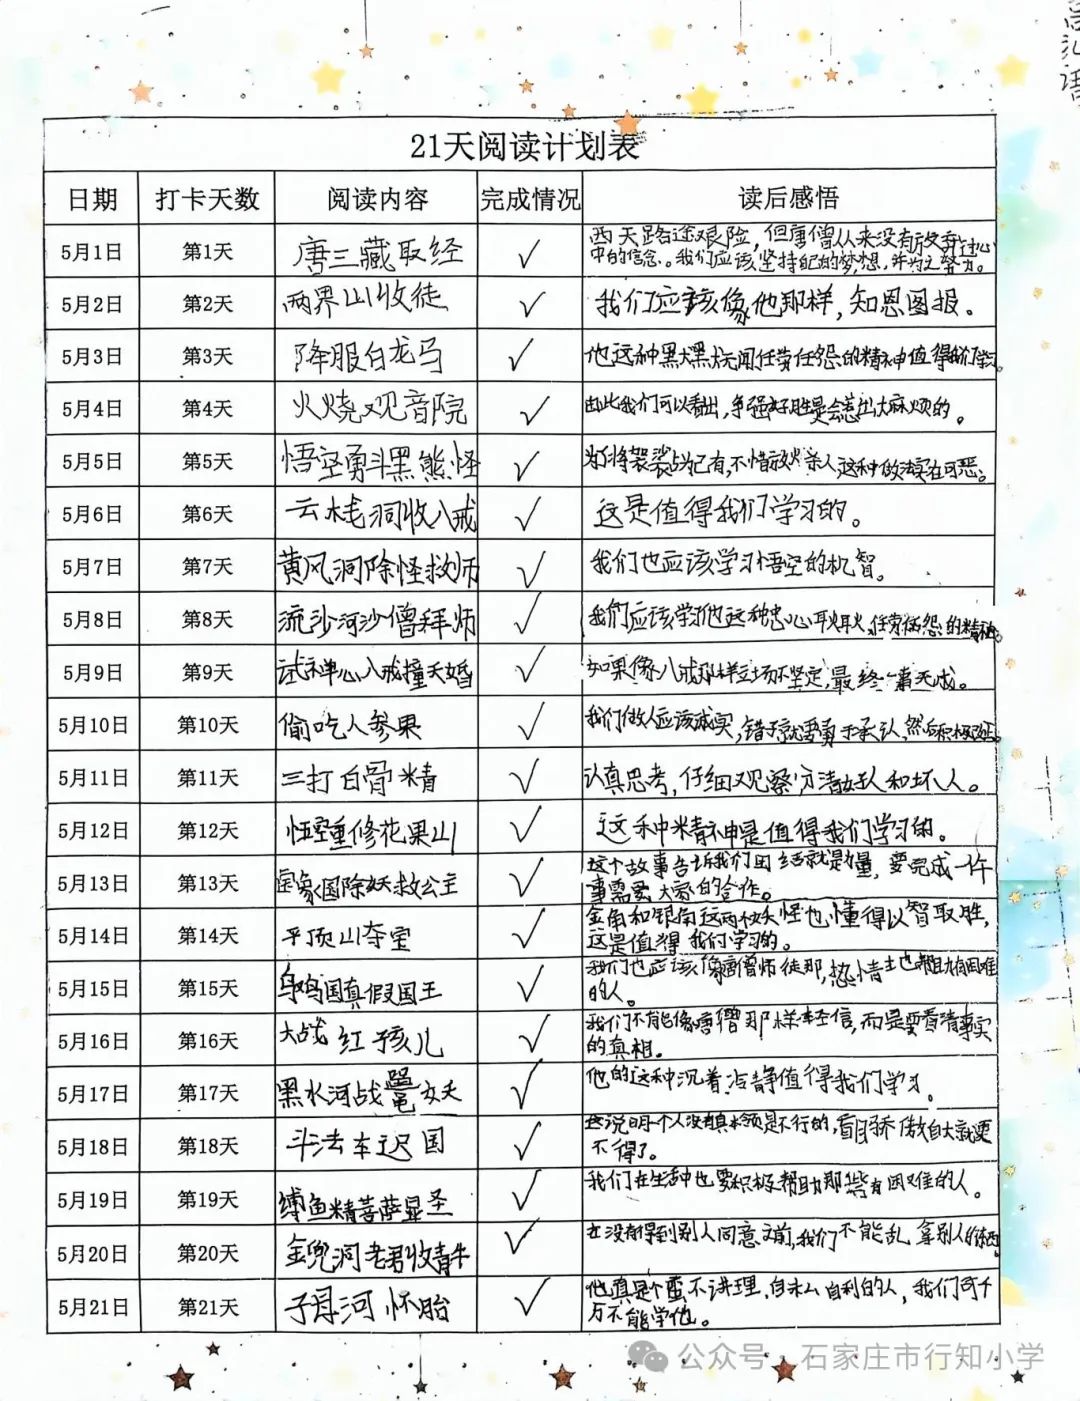 21天阅读计划表
日期 打卡天数 阅读内容 完成情况 读后感悟
5月1日 第1天 唐三藏取经 ✓ 西天路途艰险，但唐僧从来没有放弃过心
中的信念。我们应该坚持自己的梦想，并为之努力。
5月2日 第2天 两界山收徒 ✓ 我们应该像他那样，知恩图报。
5月3日 第3天 降服白龙马 ✓ 他这种默默无闻任劳任怨的精神值得我们学习。
5月4日 第4天 火烧观音院 ✓ 由此我们可以看出，争强好胜是会惹出大麻烦的。
5月5日 第5天 悟空勇斗黑熊怪 ✓ 为了将袈裟占为己有，不惜放火杀人这种做法实在可恶。
5月6日 第6天 云栈洞收八戒 ✓ 这是值得我们学习的。
5月7日 第7天 黄风洞除怪救师 ✓ 我们也应该学习悟空的机智。
5月8日 第8天 流沙河沙僧拜师 ✓ 我们应该学习他这种忠心耿耿，任劳任怨的精神。
5月9日 第9天 试禅心八戒撞天婚 ✓ 如果像八戒那样立场不坚定，最终一事无成。
5月10日 第10天 偷吃人参果 ✓ 我们做人应该诚实，错了就要勇于承认，然后积极改正。
5月11日 第11天 三打白骨精 ✓ 认真思考，仔细观察分清好人和坏人。
5月12日 第12天 悟空重修花果山 ✓ 这种精神是值得我们学习的。
5月13日 第13天 宝象国除妖救公主 ✓ 这个故事告诉我们团结就是力量，要完成一件
事需要大家的合作。
5月14日 第14天 平顶山夺宝 ✓ 金角和银角这两个妖怪也懂得以智取胜，
这是值得我们学习的。
5月15日 第15天 乌鸡国真假国王 ✓ 我们也应该像唐僧师徒那，热情主也帮助有困难
的人。
5月16日 第16天 大战红孩儿 ✓ 我们不能像唐僧那样轻信，而是要看清事实
的真相。
5月17日 第17天 黑水河战鼍妖 ✓ 他的这种沉着冷静值得我们学习。
5月18日 第18天 斗法车迟国 ✓ 这说明个人没有真本领是不行的，盲目骄傲自大就更
不得了。
5月19日 第19天 缚鱼精菩萨显圣 ✓ 我们在生活中也要积极帮助那些有困难的人。
5月20日 第20天 金兜洞老君收青牛 ✓ 在没有得到别人同意之前，我们不能乱拿别人的东西。
5月21日 第21天 子母河怀胎 ✓ 他真是个蛮不讲理，自私自利的人，我们可千
万不能学他。
公众号 · 石家庄市行知小学